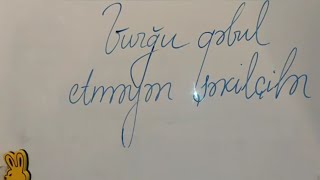 Vurğu qəbul
etməyən şəkilçilər